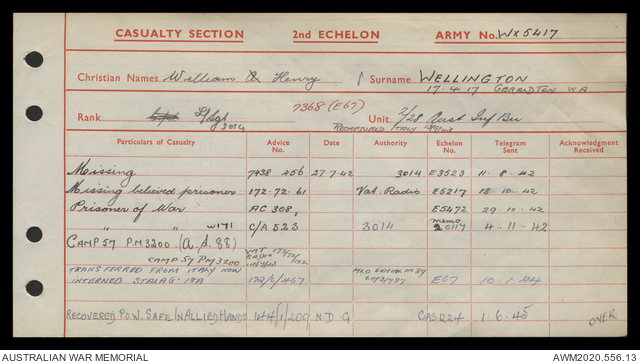 CASUALTY SECTION 2nd ECHELON ARMY No. WX5417
Christian Names William Henry Surname WELLINGTON
17.4.17 GERANDTON WA
7368 (E67)
Rank L/Sgt Unit 2/28 Aust Inf Bn
3014 RECAPTURED ITALY
Particulars of Casualty Advice No. Date Authority Echelon No. Telegram Sent Acknowledgment Received
Missing 7438 A56 27.7.42 3014 E3523 11.8.42
Missing believed prisoner 172.72.61 Vat. Radio E5217 18.10.42
Prisoner of War AC 308 E5472 29.10.42
" " W171 C/A 523 3014 memo 20117 4.11.42
CAMP 57 PM3200 (A.d.88)
CAMP 57 PM 3200
TRANSFERRED FROM ITALY NOW
INTERNED STALAG 18A 172/6/467 E67 10.1.44
RECOVERED P.O.W. SAFE IN ALLIED HANDS 144/1/209 N.D.G CAS1224 1.6.45 OVER
AUSTRALIAN WAR MEMORIAL AWM2020.556.13